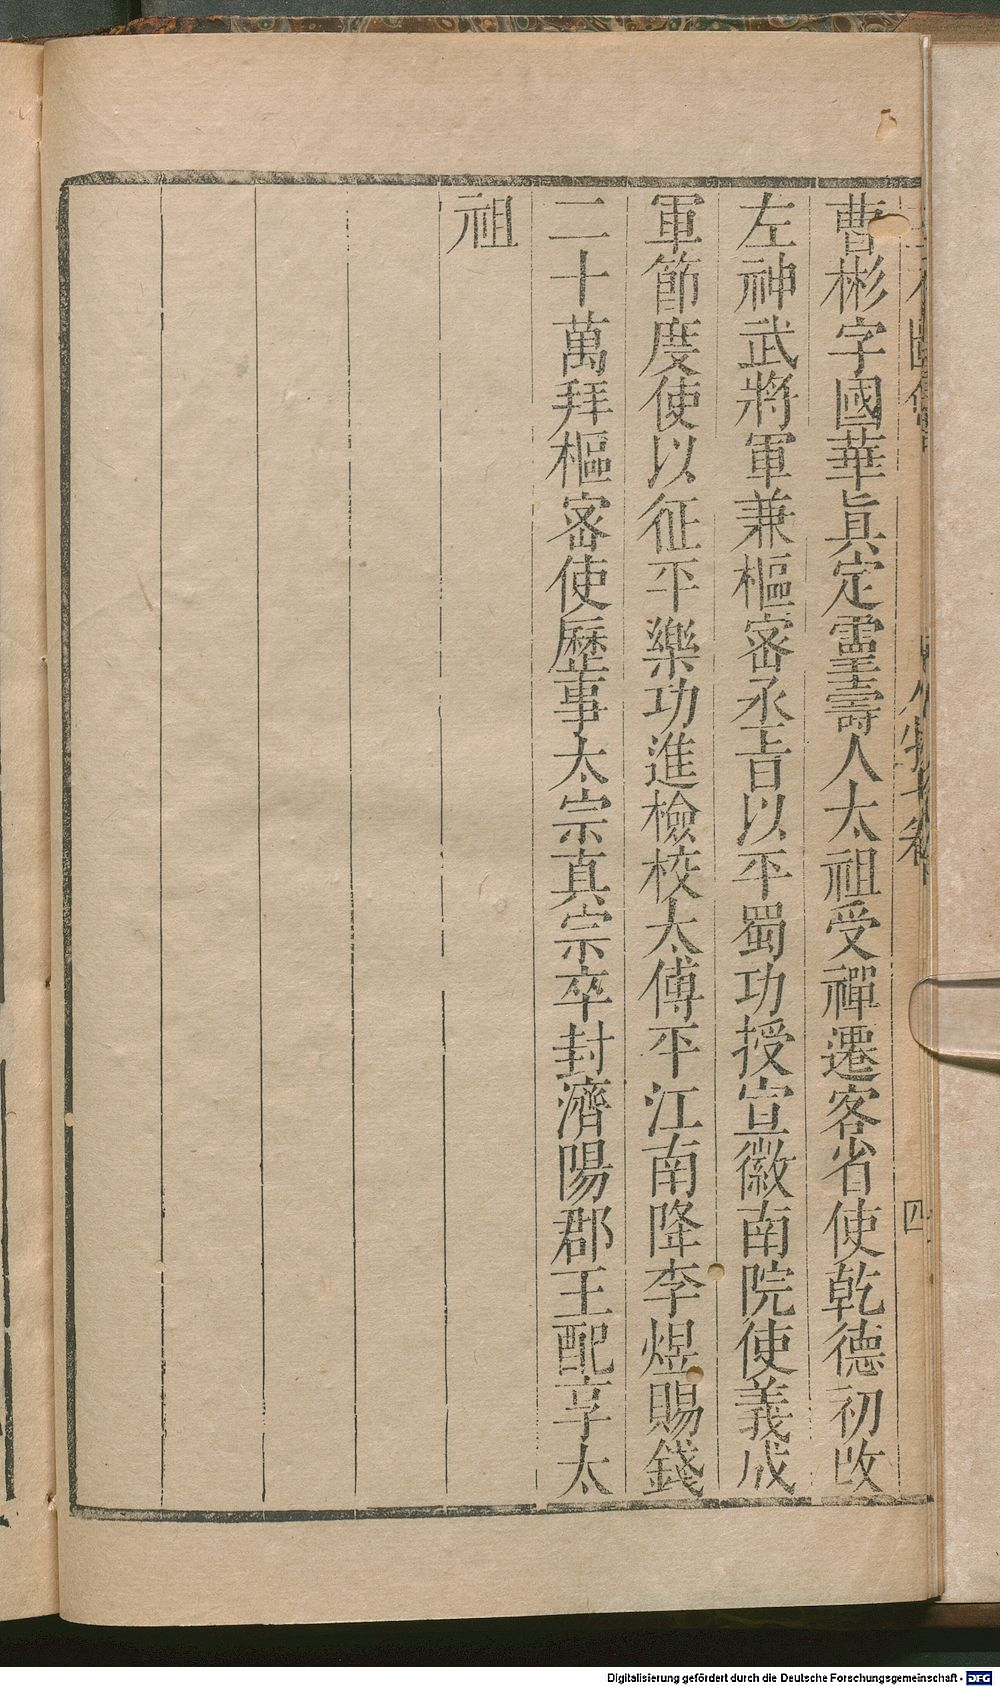 曹彬字國華眞定靈壽人太祖受禪遷客省使乾德初改
左神武將軍兼樞密丞旨以平蜀功授宣徽南院使義成
軍節度使以征平樂功進檢校太傅平江南降李煜賜錢
二十萬拜樞密使歷事太宗真宗卒封濟陽郡王配享太
祖
四
Digitalisierung gefördert durch die Deutsche Forschungsgemeinschaft - DFG